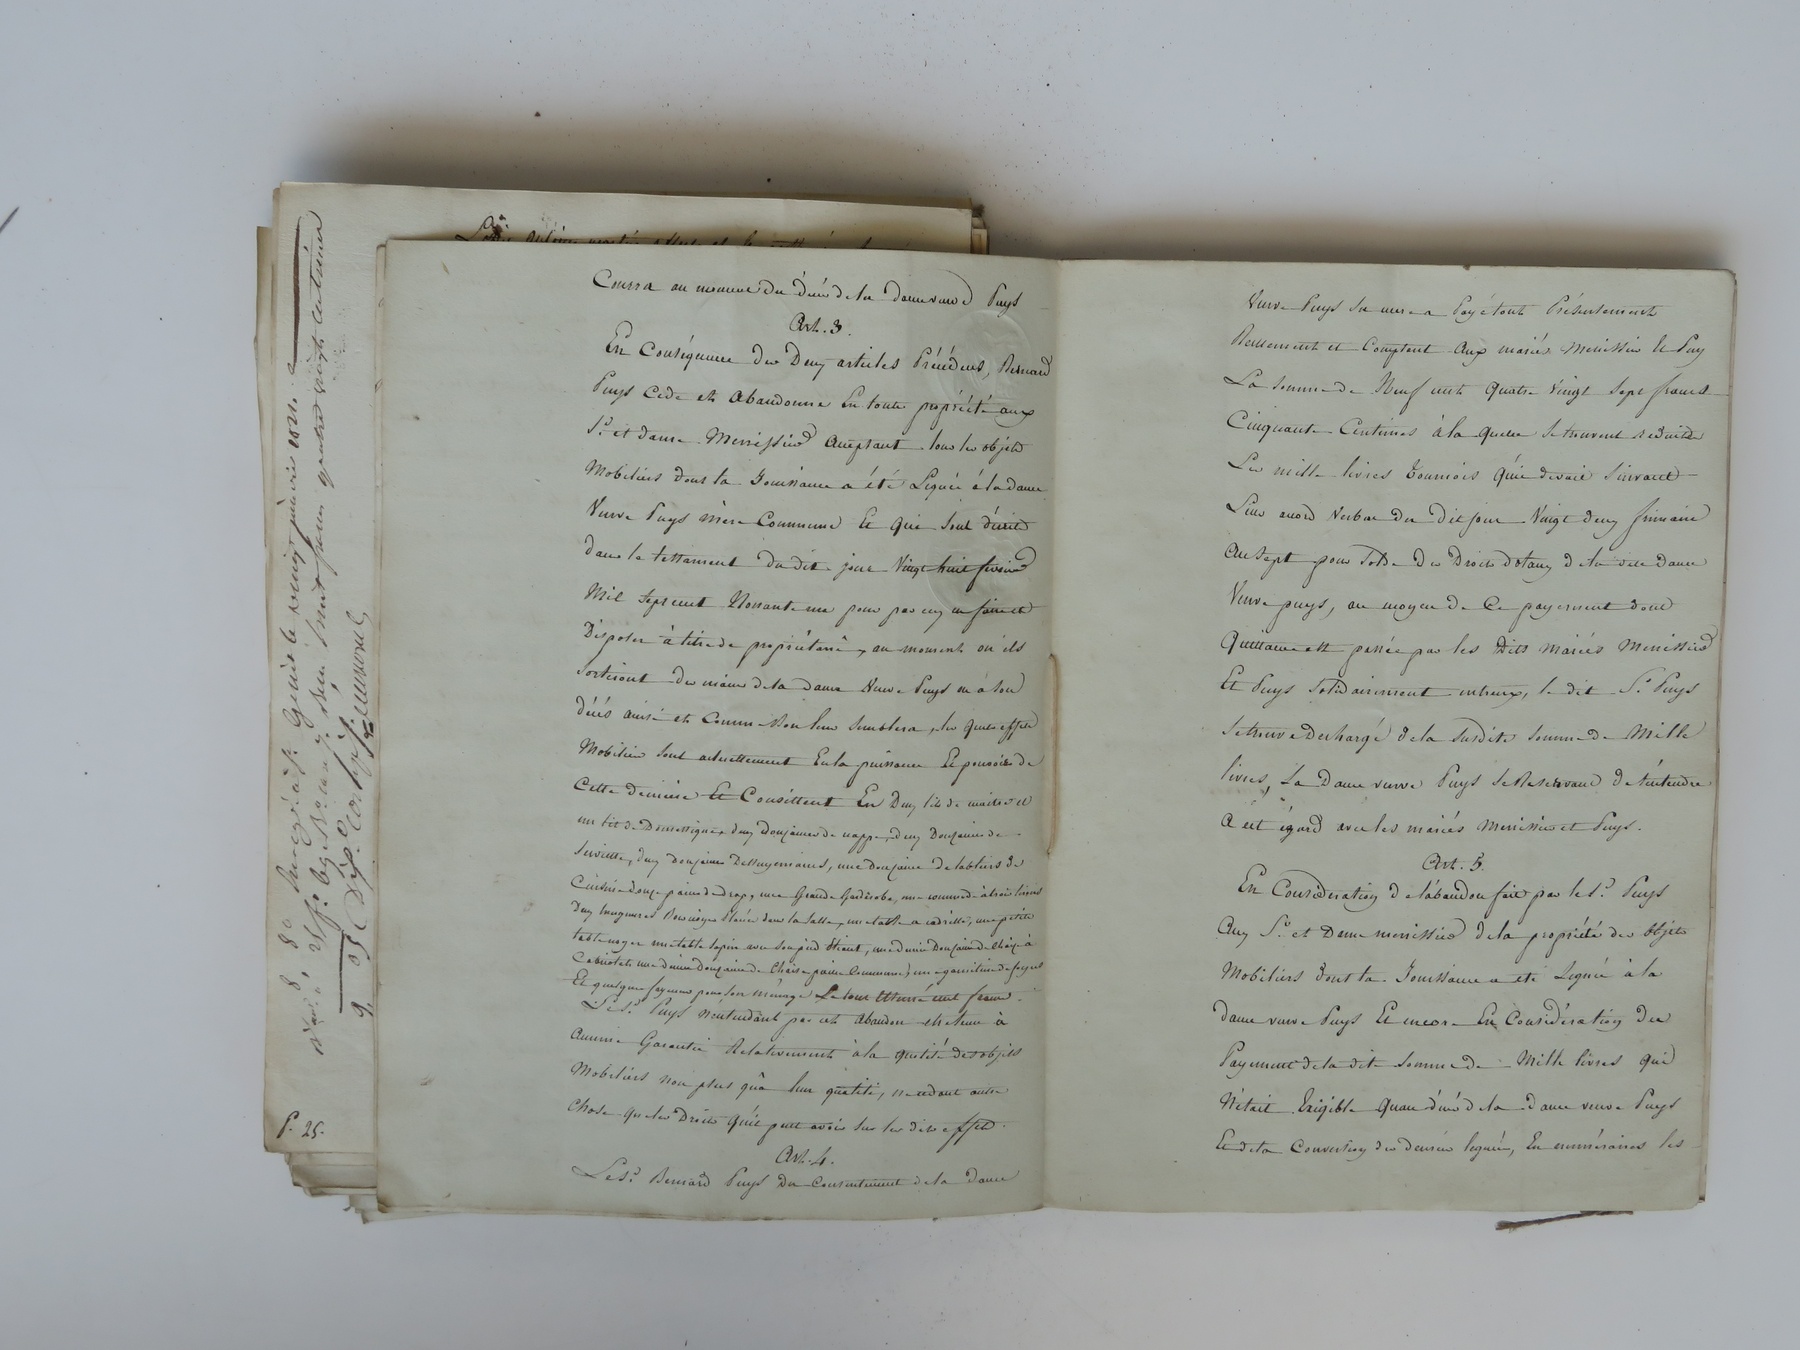 Courra au moment du décés de la dame veuve Puys
Art. 3.
En Conséquence des Deux articles Précédens, Bernard
Puys Cede et abandonne En toute propriété aux
Sr. et dame Menissier acceptant tous les objets
Mobiliers dont la Jouissance a été Leguée à la dame
Veuve Puys mère Commune Et qui sont décrits
dans le testament du dit jour Vingt huit fevrier
Mil sept cent Nonante une pour par eux en faire et
Disposer à titre de propriétaire, au moment où ils
sortiront des mains de la dame Veuve Puys ou à son
décés ainsi et comme bon leur semblera, les quels effets
Mobiliers sont actuellement En la puissance Et pouvoir de
Cette derniere Et Consistent En Deux lits de maitre et
un lit de Domestique, deux Douzaines de nappe, deux Douzaine de
Serviette, deux douzaine D'essuyemains, une Douzaine de tabliers de
Cuisine Douze paires de drap, une Grande Garderobe, une commode à trois tiroirs
Deux Placée dans la Salle, une table a une petite
table noyer une table sapin avec son pied une demie Douzaine de chaise à
une demie Douzaine de Chaise paille Commune, une garniture de foyer
Et quelque fayence pour son ménage Le tout Estimé cent francs.
Le Sr. Puys n'entendant par cet abandon être tenu à
aucune Garantie Relativement à la quotité des objets
Mobiliers non plus qu'à leur qualité, ne cedant autre
Chose que les Droits qu'il peut avoir sur les dits effets.
Art. 4.
Le Sr. Bernard Puys Du Consentement de la Dame
Veuve Puys sa mere a Payé tout Présentement
Réellement et Comptant aux mariés Menissier Et Puy
La somme de Neuf cent quatre Vingt Sept francs
Cinquante Centimes à la quelle se trouvent reduits
Les mille livres Tournois qu'il devait suivant
Leur acord verbal du dit jour Vingt deux frimaire
an Sept pour Solde des Droits dotaux de la dite dame
Veuve puys, au moyen de Ce payement dont
Quittance est passée par les dits mariés Menissier
Et Puys Solidairement entreux, le dit Sr. Puys
se trouve Dechargé de la susdite somme de Mille
livres, La Dame veuve Puys se Reservant de s'entendre
A cet égard avec les mariés Menissier et Puys.
Art. 5.
En Considération de l'abandon fait par le Sr. Puys
Aux Sr. et Dame menissier de la propriété des objets
Mobiliers dont la Jouissance a été Leguée à la
dame veuve Puys Et encore En Considération du
Payement de la dite somme de Mille livres qui
N'était Exigible qu'au décés de la dame veuve Puys
Et de la Convertion des denrées leguées, En numéraires les
P. 25.